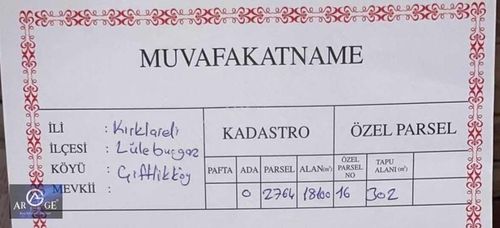 MUVAFAKATNAME
İLİ : Kırklareli
İLÇESİ : Lüleburgaz
KÖYÜ : Çiftlikköy
MEVKİİ :
KADASTRO
ÖZEL PARSEL
PAFTA ADA PARSEL ALAN(m²) ÖZEL PARSEL NO TAPU ALANI (m²)
0 2764 18100 16 302
ARGE